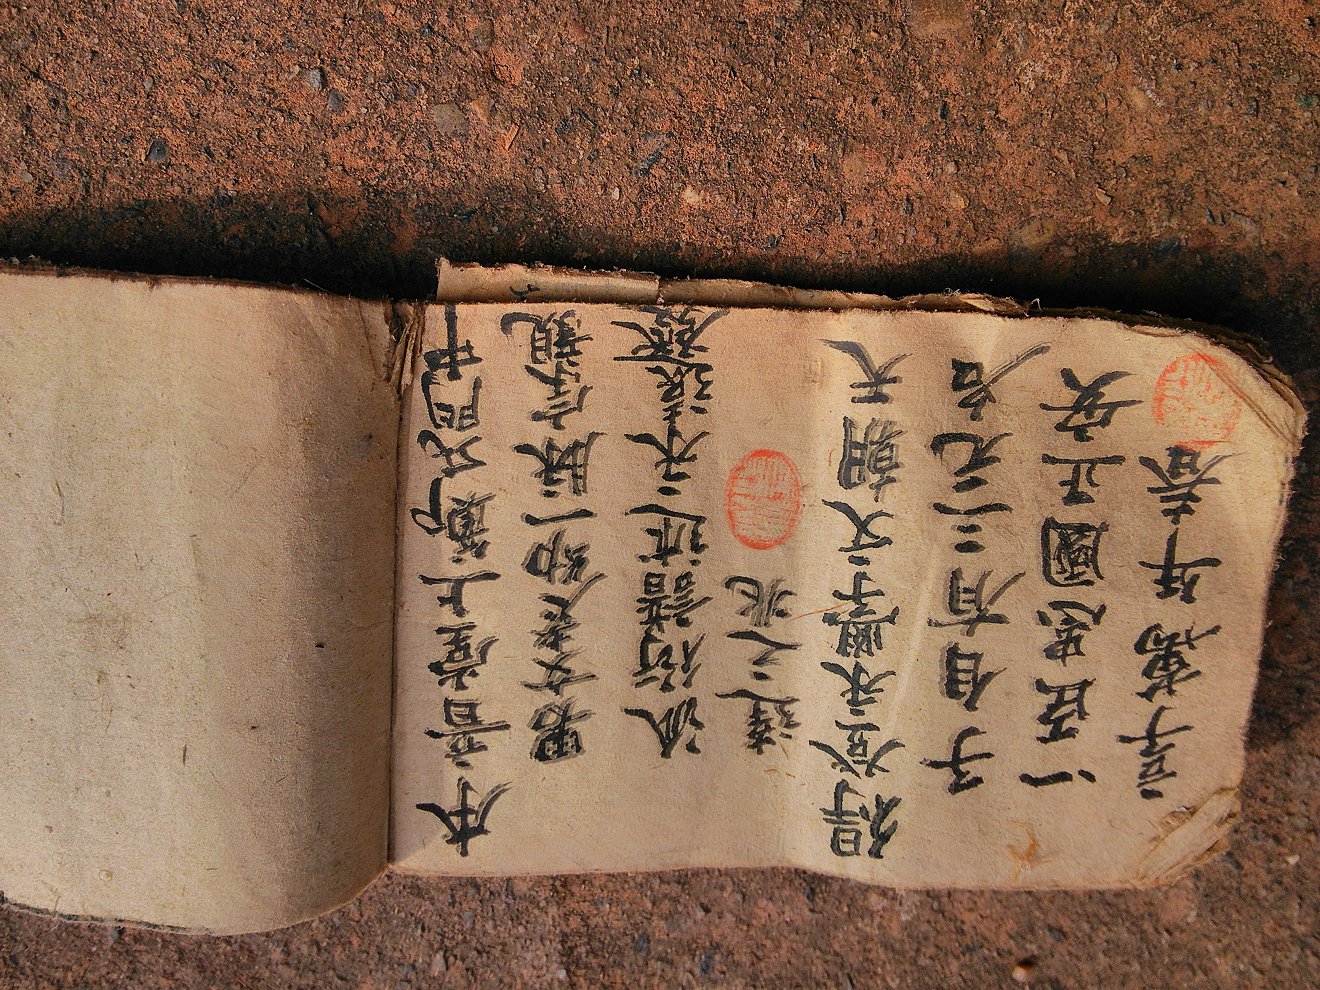 本音堂上鄭氏門中
男女老幼一脉宗親
派衍譜述永遠發
達之兆
得登永學文朝天
子自有三元名
一臣忠國正安
享萬年春